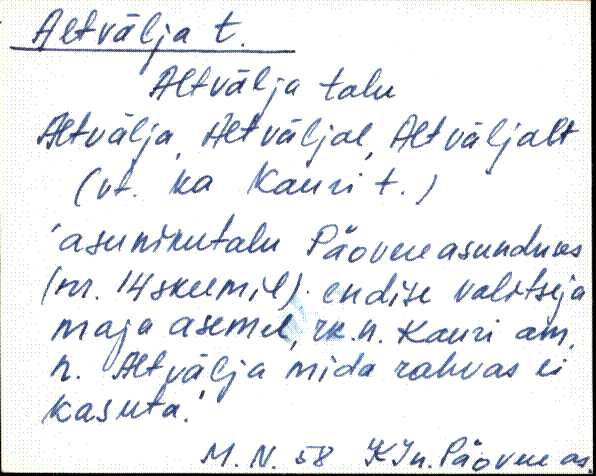 Altvälja t.
Altvälja talu
Altvälja, Altväljal, Altväljalt
(vt. ka Kauri t.)
'asunikutalu Päovere asunduses
(nr. 14 skeemil). endise valitseja
maja asemel, rk.n. Kauri am.
n. Altvälja mida rahvas ei
kasuta.'
M.N. 58 KJn. Päovere as.